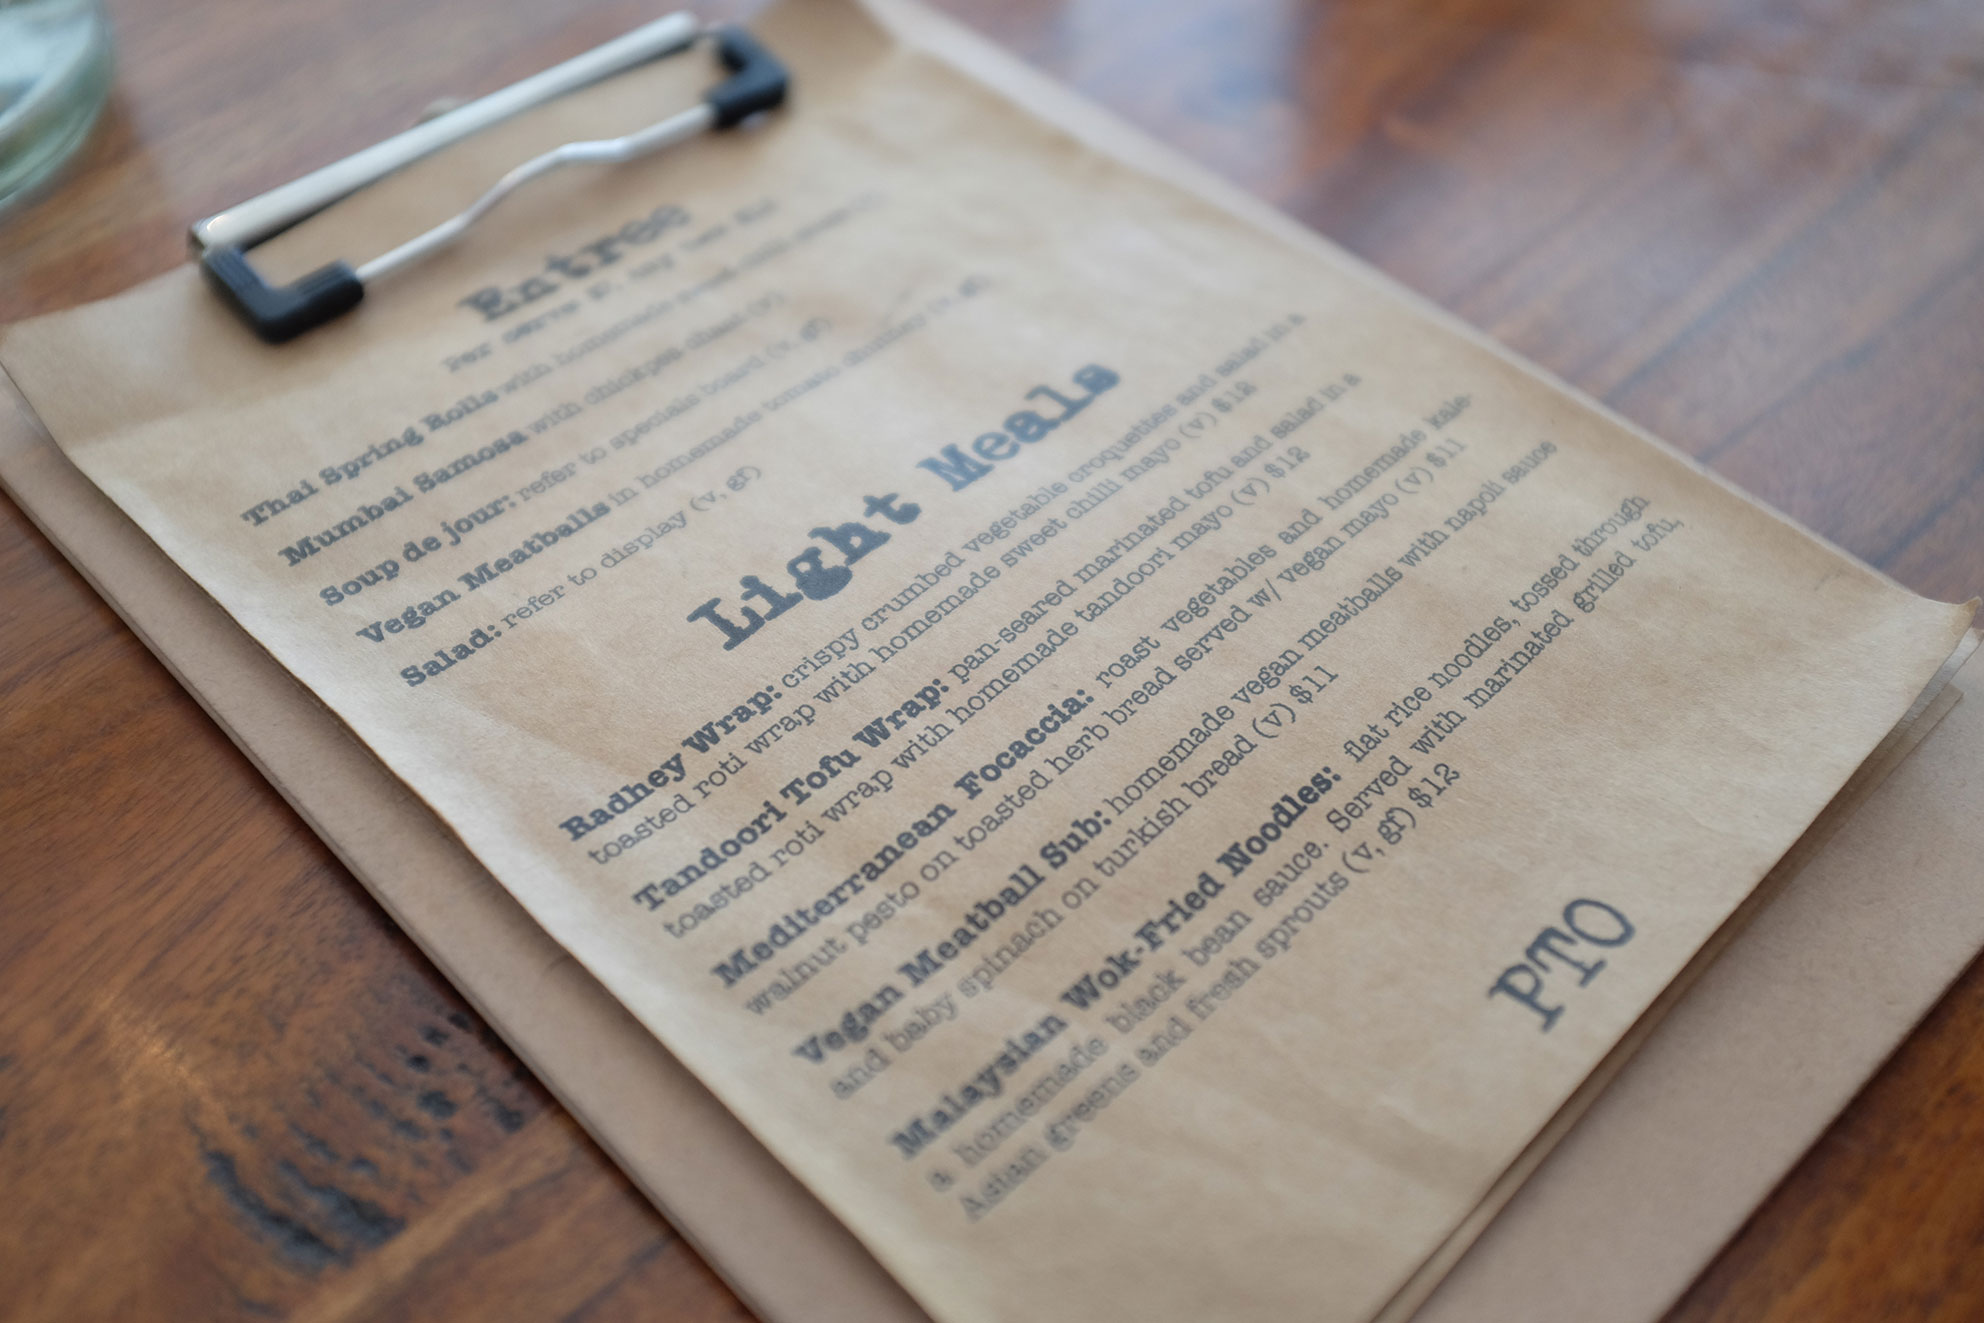 Entree
Per serve $7, any two $12
Thai Spring Rolls with homemade sweet chilli sauce (v)
Mumbai Samosa with chickpea chaat (v)
Soup de jour: refer to specials board (v, gf)
Vegan Meatballs in homemade tomato chutney (v, gf)
Salad: refer to display (v, gf)
Light Meals
Radhey Wrap: crispy crumbed vegetable croquettes and salad in a
toasted roti wrap with homemade sweet chilli mayo (v) $12
Tandoori Tofu Wrap: pan-seared marinated tofu and salad in a
toasted roti wrap with homemade tandoori mayo (v) $12
Mediterranean Focaccia: roast vegetables and homemade kale-
walnut pesto on toasted herb bread served w/ vegan mayo (v) $11
Vegan Meatball Sub: homemade vegan meatballs with napoli sauce
and baby spinach on turkish bread (v) $11
Malaysian Wok-Fried Noodles: flat rice noodles, tossed through
a homemade black bean sauce. Served with marinated grilled tofu,
Asian greens and fresh sprouts (v, gf) $12
PTO